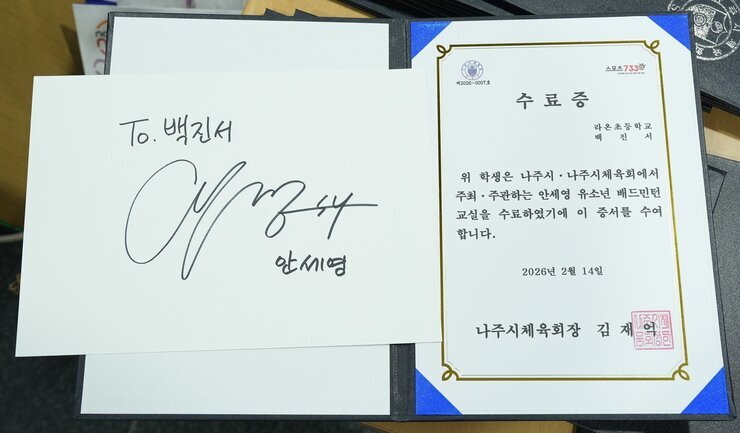 To. 백진서
안세영
제2026-0007호
스포츠733
수 료 증
라온초등학교
백 진 서
위 학생은 나주시·나주시체육회에서
주최·주관하는 안세영 유소년 배드민턴
교실을 수료하였기에 이 증서를 수여
합니다.
2026년 2월 14일
나주시체육회장 김 재 억